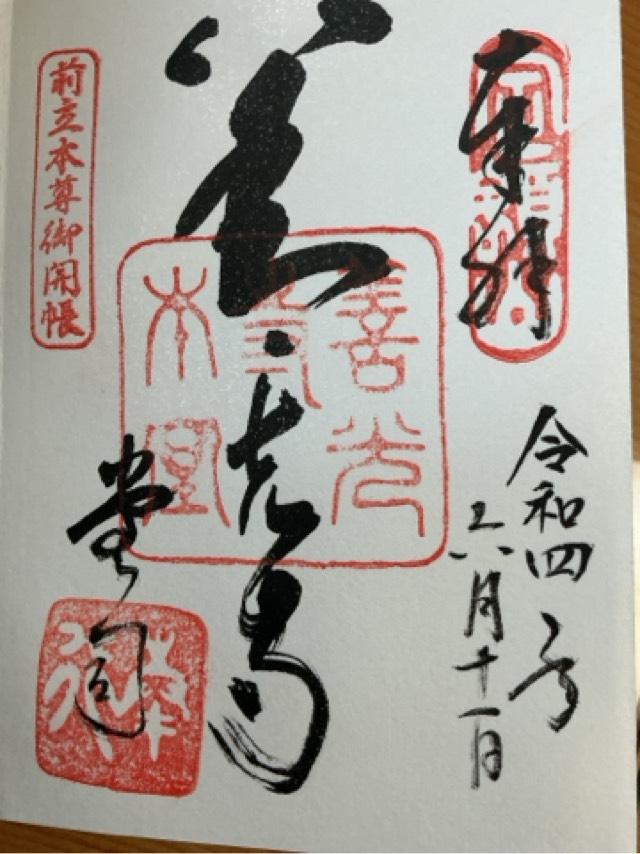 奉拝
令和四年
六月十一日
善光寺
善光
寺
本堂
堂司
前立本尊御開帳